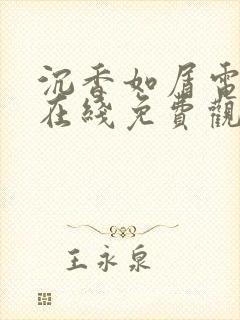 沉香如屑電
在綫免費觀
王永泉